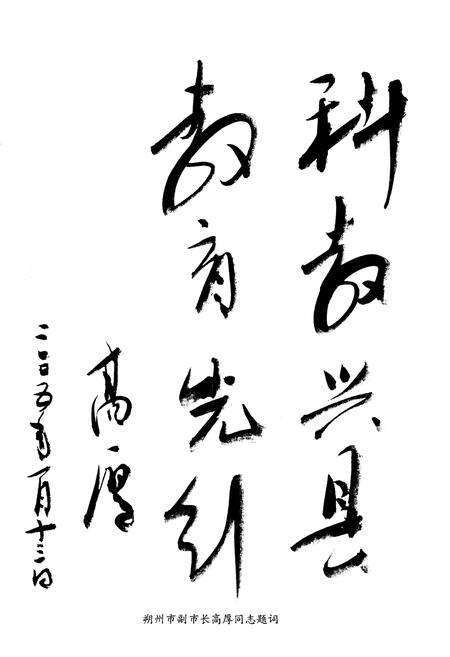 科教兴县
教育先行
高厚
二〇〇五年一月十三日
朔州市副市长高厚同志题词